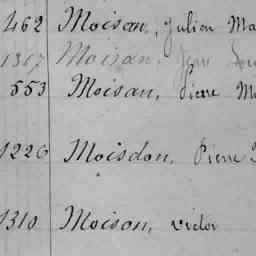 462 Moison, Julien Ma
1317 Moisan, Jean
553 Moisan, Pierre M
1226 Moisdon, Pierre
1310 Moison, victor